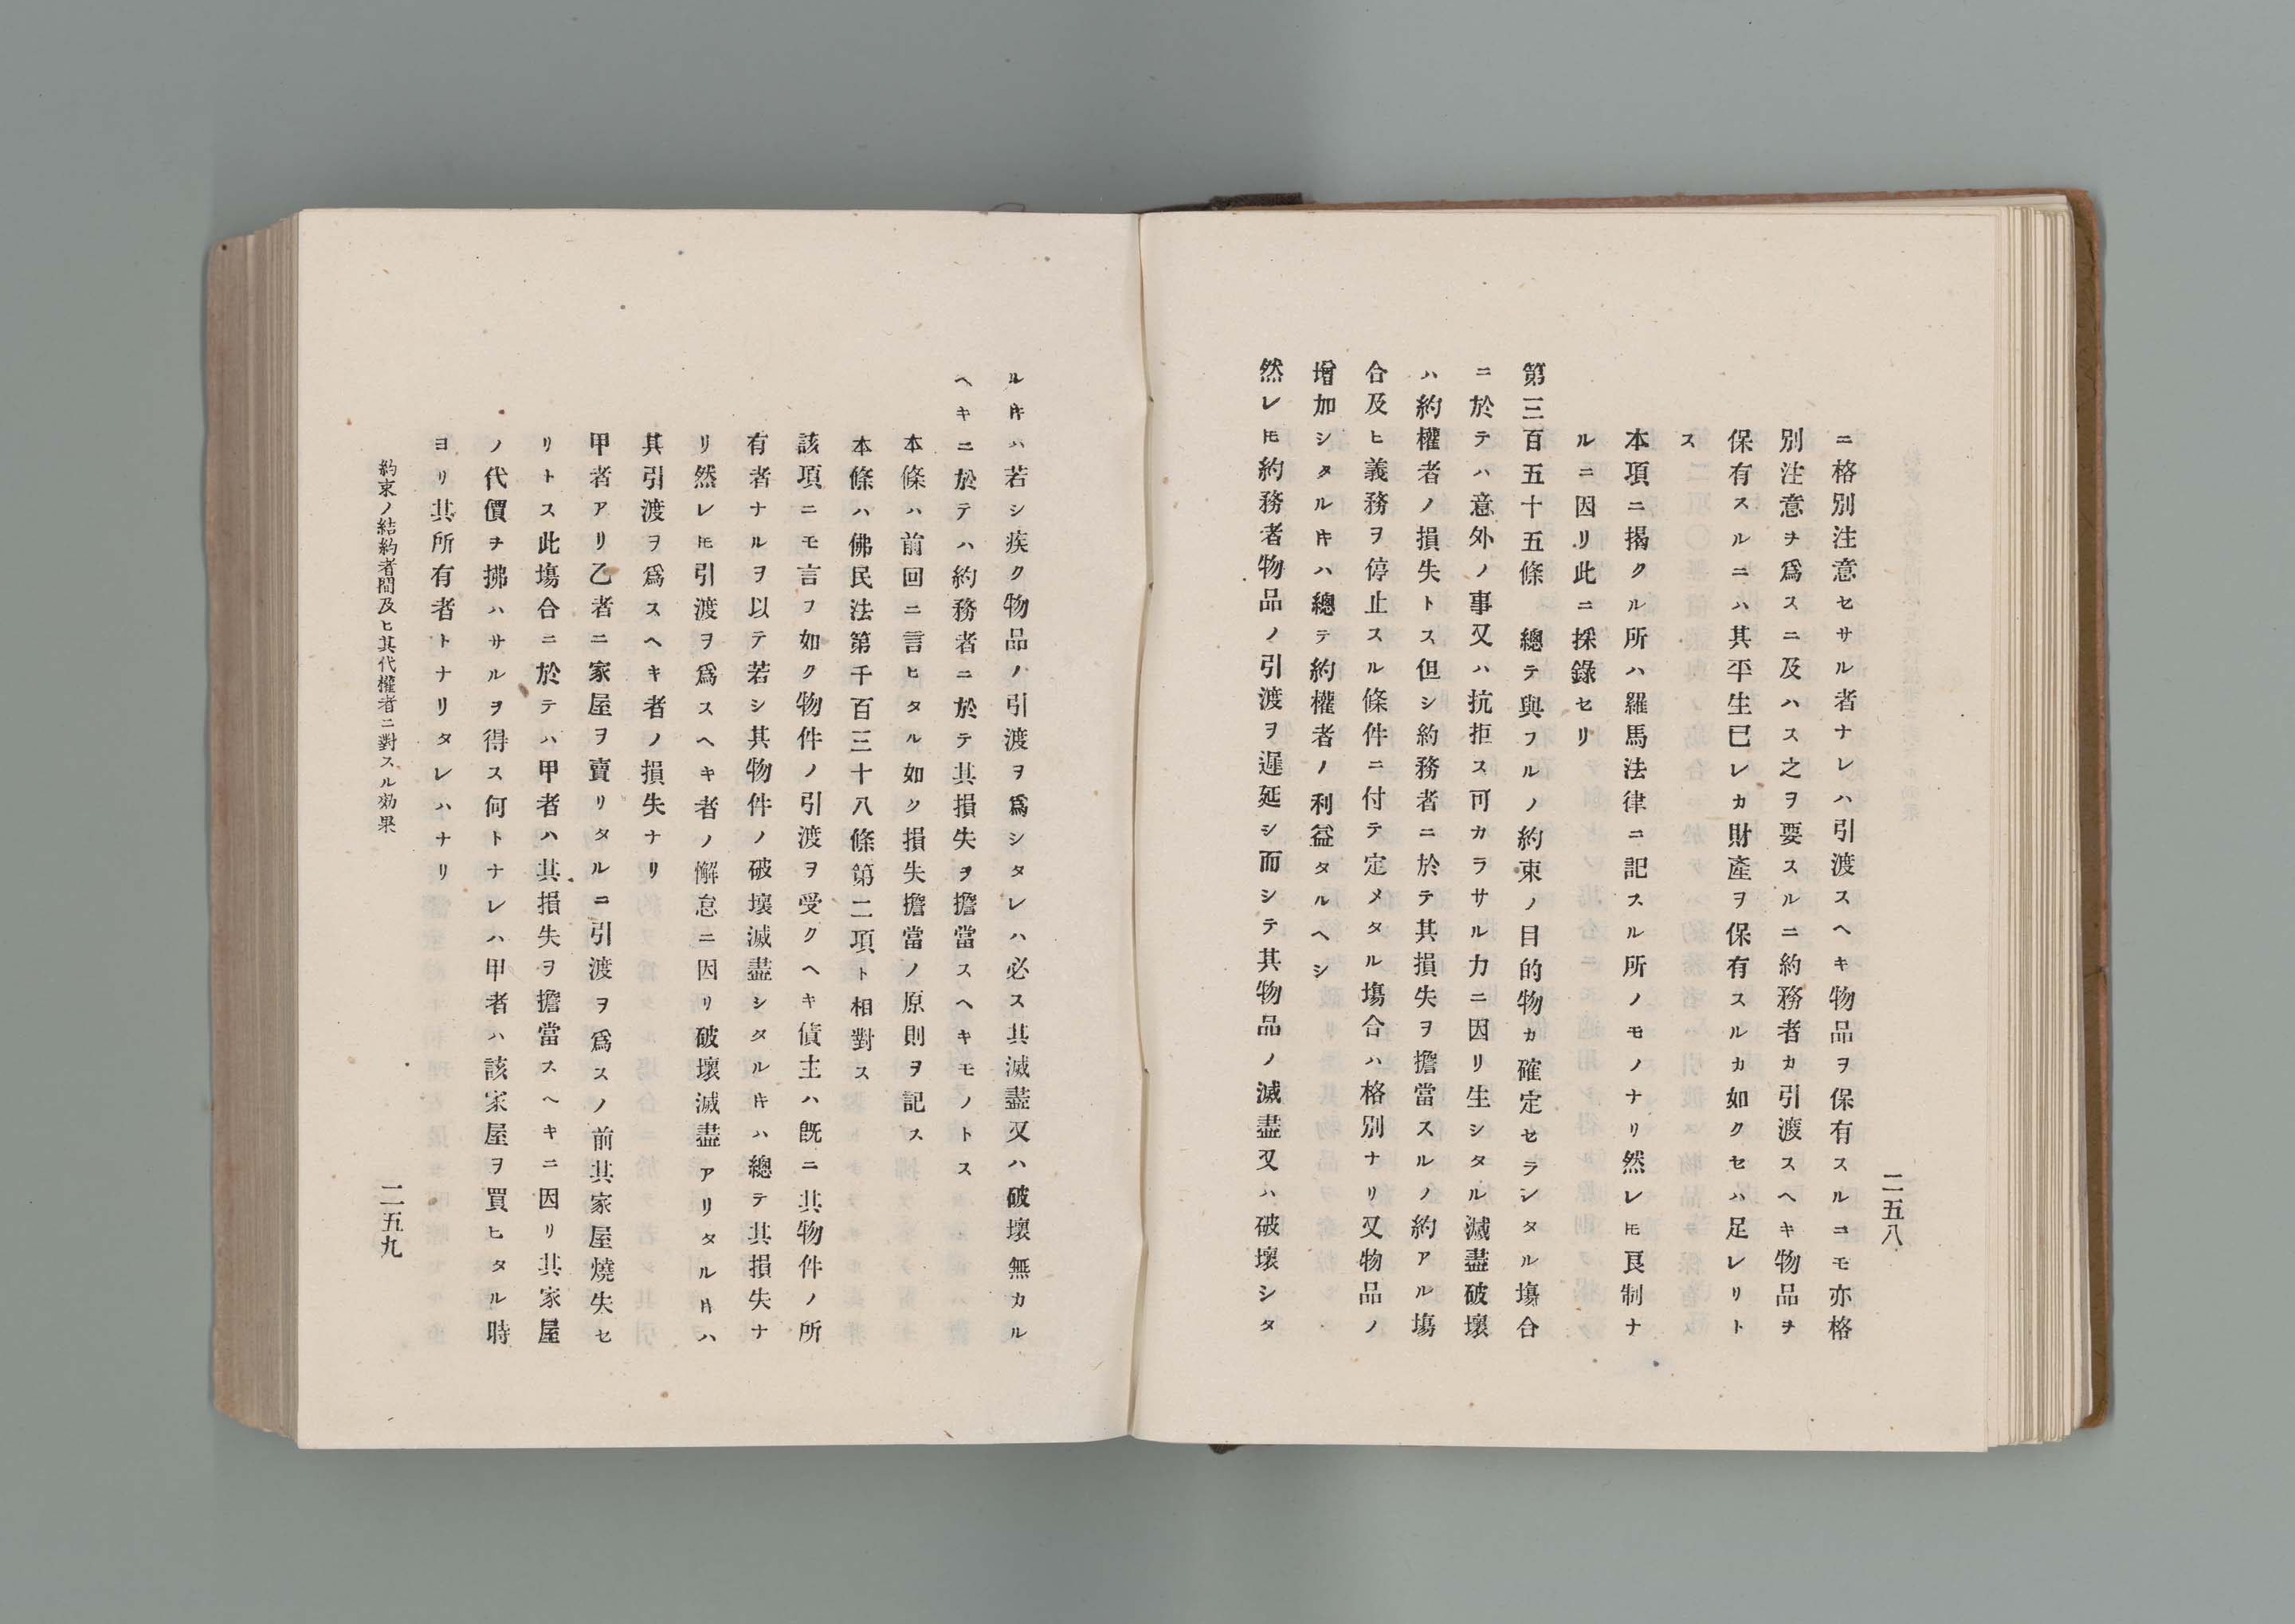 ニ格別注意セサル者ナレハ引渡スヘキ物品ヲ保有スルコモ亦格
別注意ヲ爲スニ及ハス之ヲ要スルニ約務者カ引渡スヘキ物品ヲ
保有スルニハ其平生已レカ財產ヲ保有スルカ如クセハ足レリト
ス
本項ニ揭クル所ハ羅馬法律ニ記スル所ノモノナリ然レ𪜈良制ナ
ルニ因リ此ニ採錄セリ
第三百五十五條 總テ與フルノ約束ノ目的物カ確定セラレタル塲合
ニ於テハ意外ノ事又ハ抗拒ス可カラサル力ニ因リ生シタル滅盡破壞
ハ約權者ノ損失トス但シ約務者ニ於テ其損失ヲ擔當スルノ約アル塲
合及ヒ義務ヲ停止スル條件ニ付テ定メタル塲合ハ格別ナリ又物品ノ
增加シタル𪜈ハ總テ約權者ノ利益タルヘシ
然レ𪜈約務者物品ノ引渡ヲ遲延シ而シテ其物品ノ滅盡又ハ破壞シタ
二五八
ルキハ若シ疾ク物品ノ引渡ヲ爲シタレハ必ス其滅盡又ハ破壞無カル
ヘキニ於テハ約務者ニ於テ其損失ヲ擔當スヘキモノトス
本條ハ前回ニ言ヒタル如ク損失擔當ノ原則ヲ記ス
本條ハ佛民法第千百三十八條第二項ト相對ス
該項ニモ言フ如ク物件ノ引渡ヲ受クヘキ債主ハ既ニ其物件ノ所
有者ナルヲ以テ若シ其物件ノ破壞滅盡シタルキハ總テ其損失ナ
リ然レ𪜈引渡ヲ爲スヘキ者ノ懈怠ニ因リ破壞滅盡アリタルキハ
其引渡ヲ爲スヘキ者ノ損失ナリ
甲者アリ乙者ニ家屋ヲ賣リタルニ引渡ヲ爲スノ前其家屋燒失セ
リトス此塲合ニ於テハ甲者ハ其損失ヲ擔當スヘキニ因リ其家屋
ノ代價ヲ拂ハサルヲ得ス何トナレハ甲者ハ該家屋ヲ買ヒタル時
ヨリ其所有者トナリタレハナリ
約束ノ結約者間及ヒ其代權者ニ對スル効果
二五九